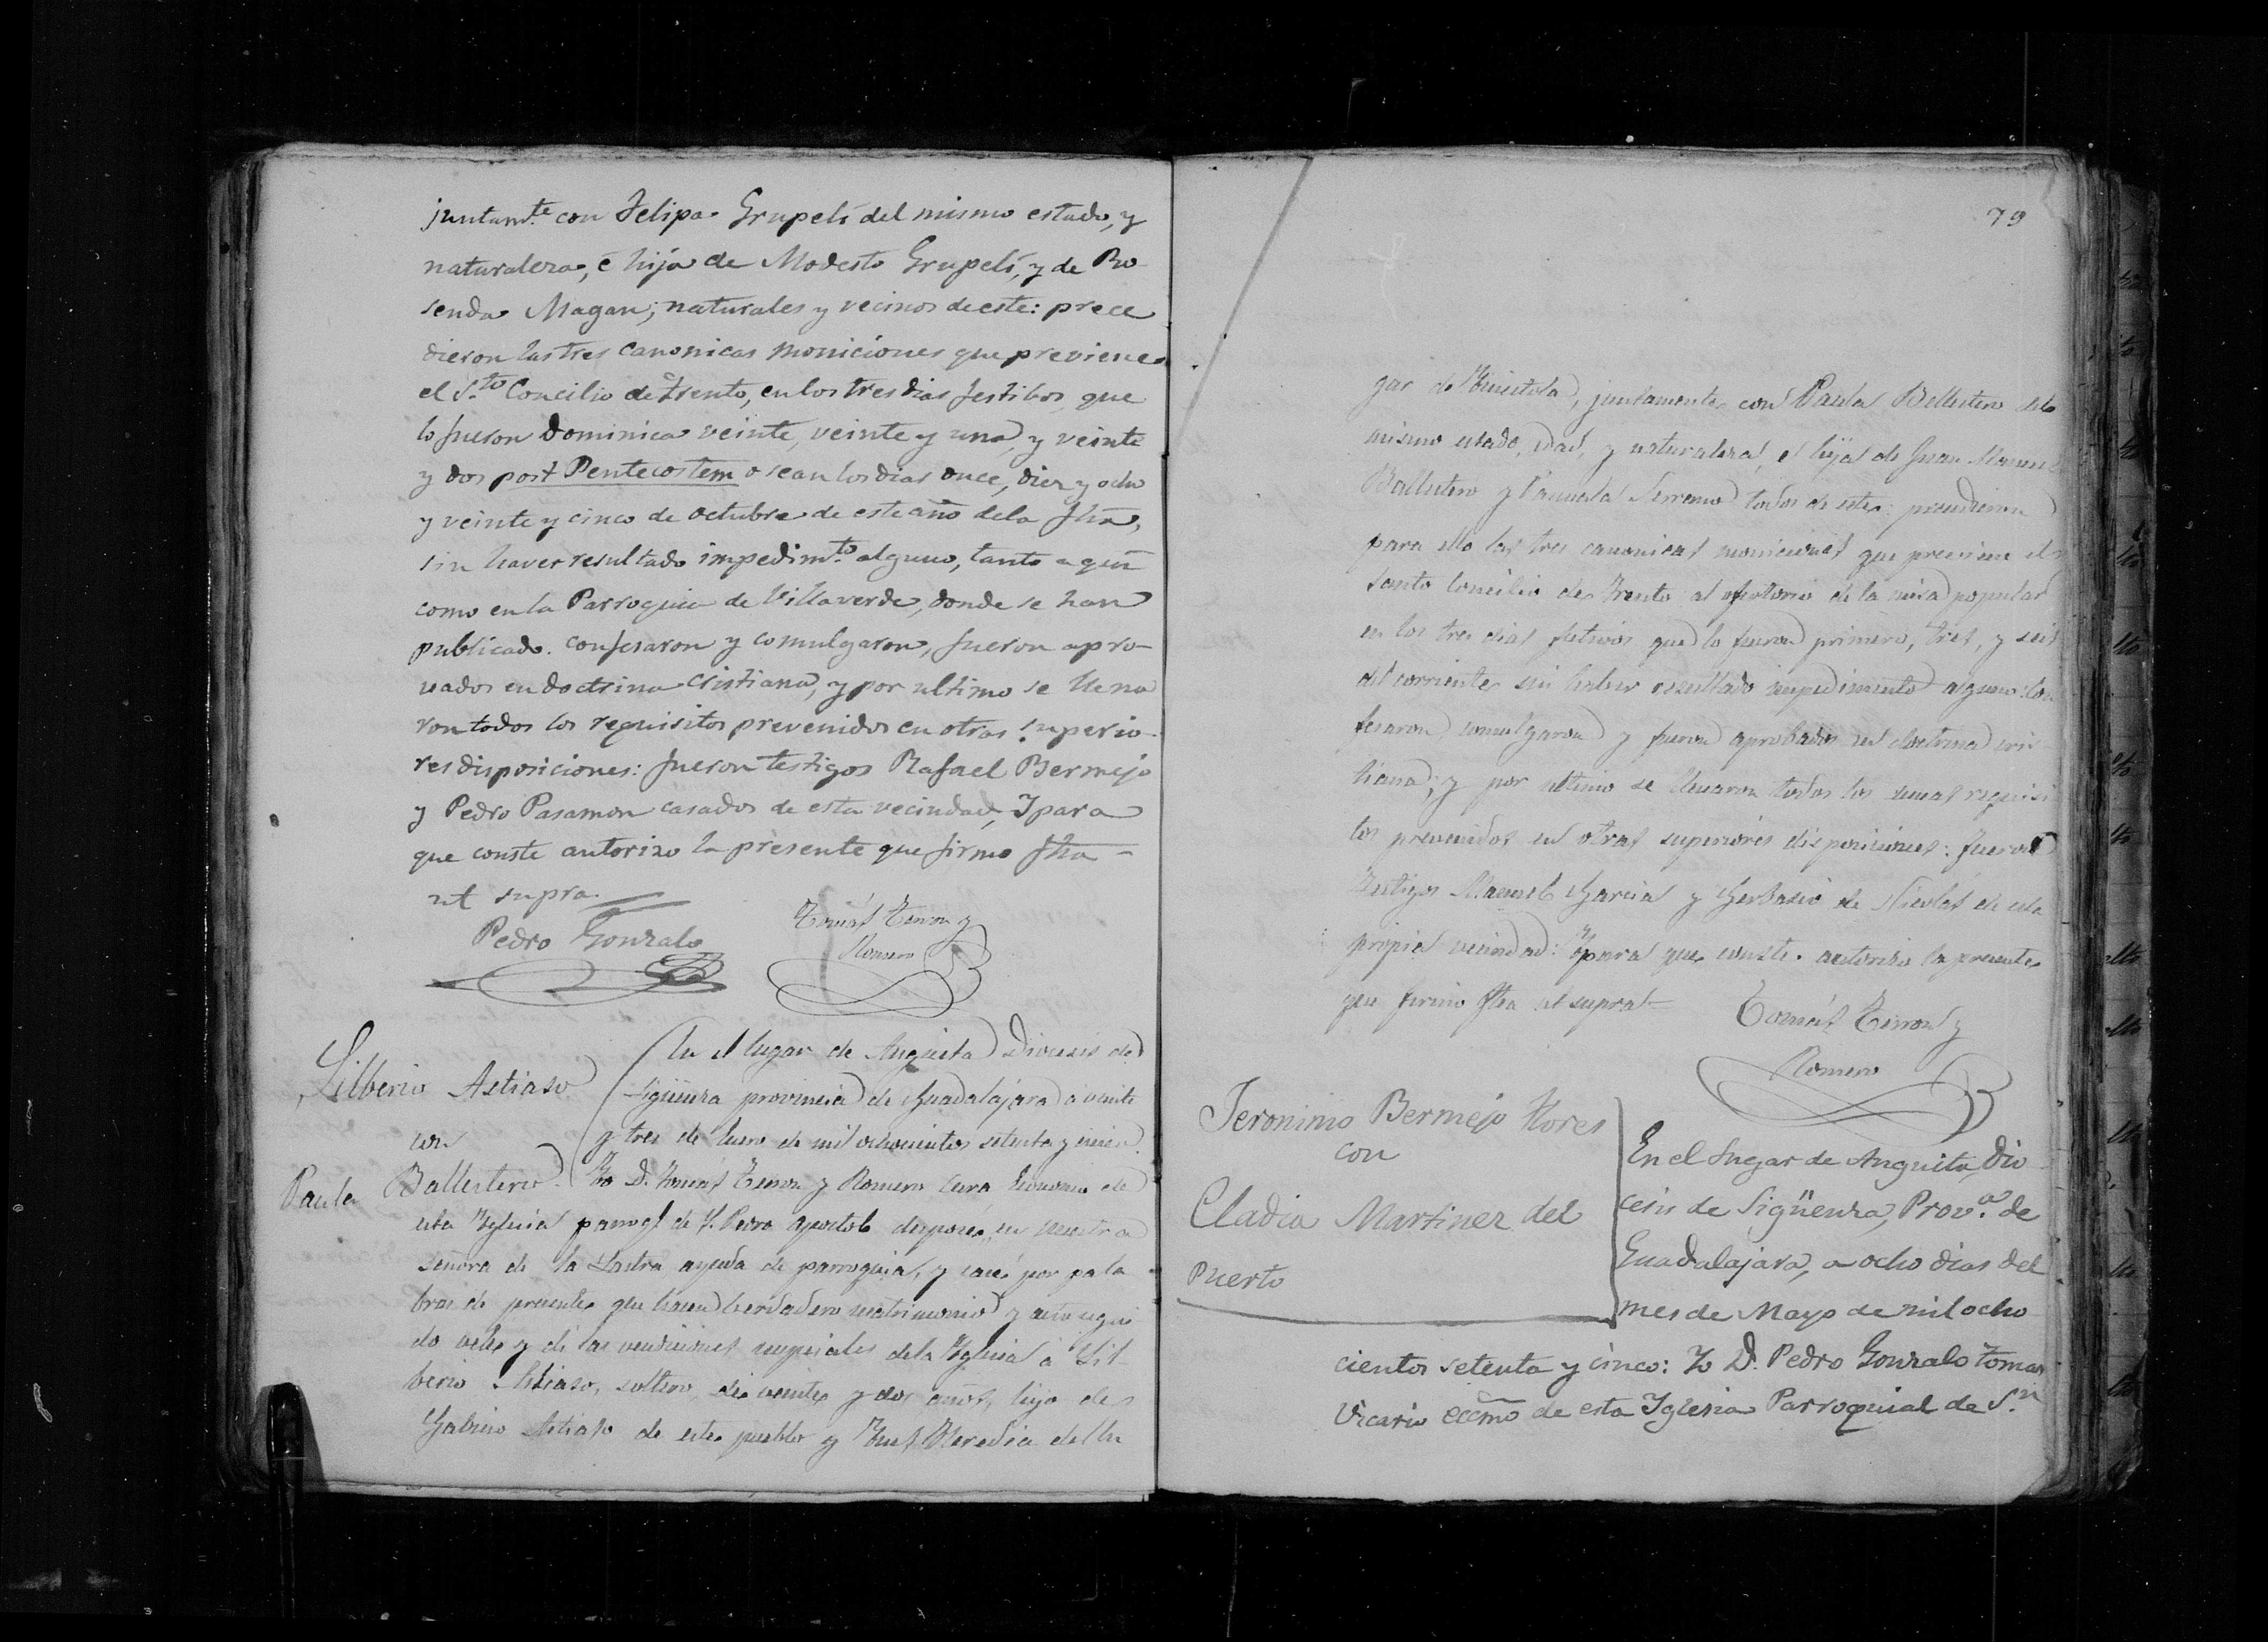 juntam.te con Felipa Grupeli del mismo estado, y
naturaleza, e hija de Modesto Grupeli, y de Ro
senda Magan; naturales y vecinos de este: prece
dieron las tres canonicas moniciones que previene
el S.to Concilio de Trento, en los tres dias festibos que
lo fueron Dominica veinte, veinte y una, y veinte
y dos post Pentecostem o sean los dias once, diez y ocho
y veinte y cinco de octubre de este año dela fha,
sin haver resultado impedim.to alguno, tanto aqui
como en la Parroquia de Villaverde, donde se han
publicado. confesaron y comulgaron, fueron apro-
vados en doctrina cristiana, y por ultimo se llena
ron todos los requisitos prevenidos en otras superio-
res disposiciones: fueron testigos Rafael Bermejo
y Pedro Pasamon casados de esta vecindad, Ipara
que conste autorizo la presente que firmo fha
ut supra.
Pedro Gonzalo
Tomás Terron y
Romero
Silberio Astiaso
con
Paula Ballestero
En el lugar de Anguita Diocesis de
Sigüenza provincia de Guadalajara a veinte
y tres de Enero de mil ochocientos setenta y cinco.
Yo D. Tomás Terron y Romero Cura Economo de
esta Iglesia parroql de S. Pedro Apostol desposé, en Nuestra
Señora de la Lastra ayuda de parroquia, y casé por pala
bras de presente que hacen berdadero matrimonio y acto segui
do velé y di las vendiciones nupciales dela Iglesia a Sil
berio Astiaso, soltero, de veinte y dos años, hijo de
Gabino Astiaso de este pueblo y Heredia del lu
79
gar de juntamente con Paula Ballestero del
mismo estado, edad, y naturaleza, e hija de Juan Manuel
Ballestero y Serrano todos de este: precedieron
para ello las tres canonicas moniciones que previene el
Santo Concilio de Trento al ofertorio de la misa popular
en los tres dias festivos que lo fueron primero, tres, y seis
del corriente sin haber resultado impedimento alguno: con
fesaron comulgaron y fueron aprobados en doctrina cris
tiana; y por ultimo se llenaron todos los demas requisi
tos prevenidos en otras superiores disposiciones: fueron
testigos Manuel Garcia y Gerbasio de Nicolas de esta
propia vecindad: Ypara que conste autorizo la presente
que firmo fha ut supra
Tomás Terron y
Romero
Jeronimo Bermejo Flores
con
Cladia Martinez del
Puerto
En el Lugar de Anguita, Dio
cesis de Sigüenza, Prov.a de
Guadalajara, a ocho dias del
mes de Mayo de mil ocho
cientos setenta y cinco: Yo D. Pedro Gonzalo Tomas
Vicario ecc̃mo de esta Iglesia Parroquial de S.n